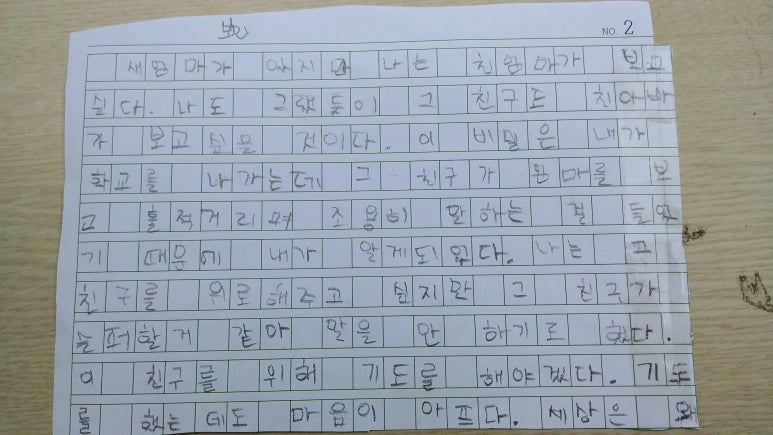 NO. 2
새엄마가 하지만 나는 친엄마가 보고
싶다. 나도 그렇듯이 그 친구도 친아빠
가 보고 싶을 것이다. 이 비밀은 내가
학교를 나가는데 그 친구가 엄마를 보
고 훌쩍거리며 조용히 말하는 걸 들었
기 때문에 내가 알게되었다. 나는 그
친구를 위로해주고 싶지만 그 친구가
슬퍼할거 같아 말을 안 하기로 했다.
이 친구를 위해 기도를 해야겠다. 기도
를 했는데도 마음이 아프다. 세상은